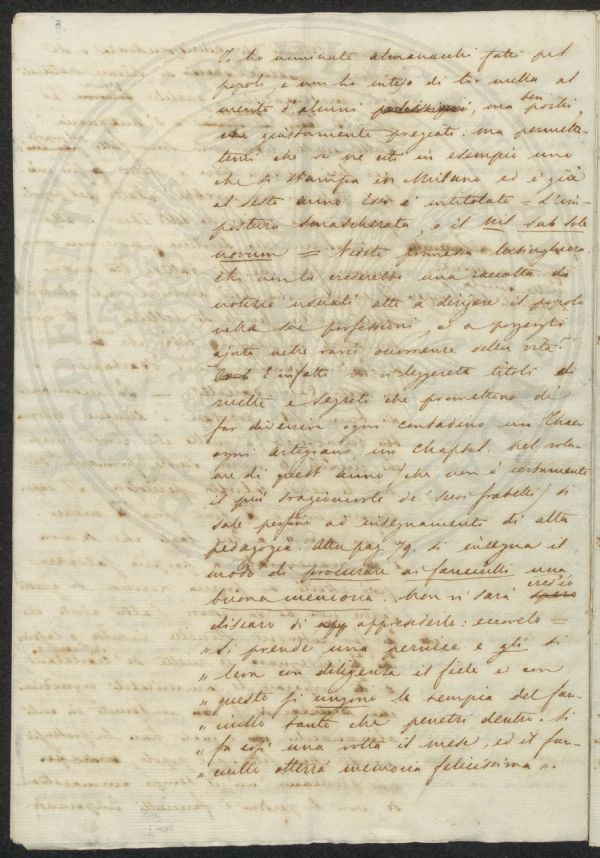 Io ho nominato almanacchi fatti pel
popolo, e non ho inteso di dir nulla al
merito d'alcuni, ma ben pochi,
che giustamente pregiati: ma permette-
temi che io ve citi in esempio uno
che si stampa in Milano ed è già
al sesto anno. Esso è intitolato = L'im-
postura smascherata, o il Nil sub sole
novum = Vedete promessa lusinghiera.
Chi non lo crederebbe una raccolta di
notizie usuali atte a dirigere il popolo
nelle sue professioni, e a porgergli
ajuto nelle varie occorrenze della vita?
E infatti vi leggerete titoli di
ricette e segreti che promettono di
far divenir ogni contadino un Thaer
ogni artigiano un Chaptal. Nel volu-
me di quest'anno (che non è certamente
il più sragionevole de' suoi fratelli) si
sale perfino ad insegnamento di alta
pedagogia. Alla pag. 79. si insegna il
modo di procurare ai fanciulli una
buona memoria. Non vi sarà credo
discaro di apprenderlo: eccovelo =
" Si prende una pernice e gli si
" leva con diligenza il fiele e con
" questo si ungono le tempia del fan-
" ciullo tanto che penetri dentro. Si
" fa così una volta il mese, ed il fan-
" ciullo otterrà memoria felicissima ".